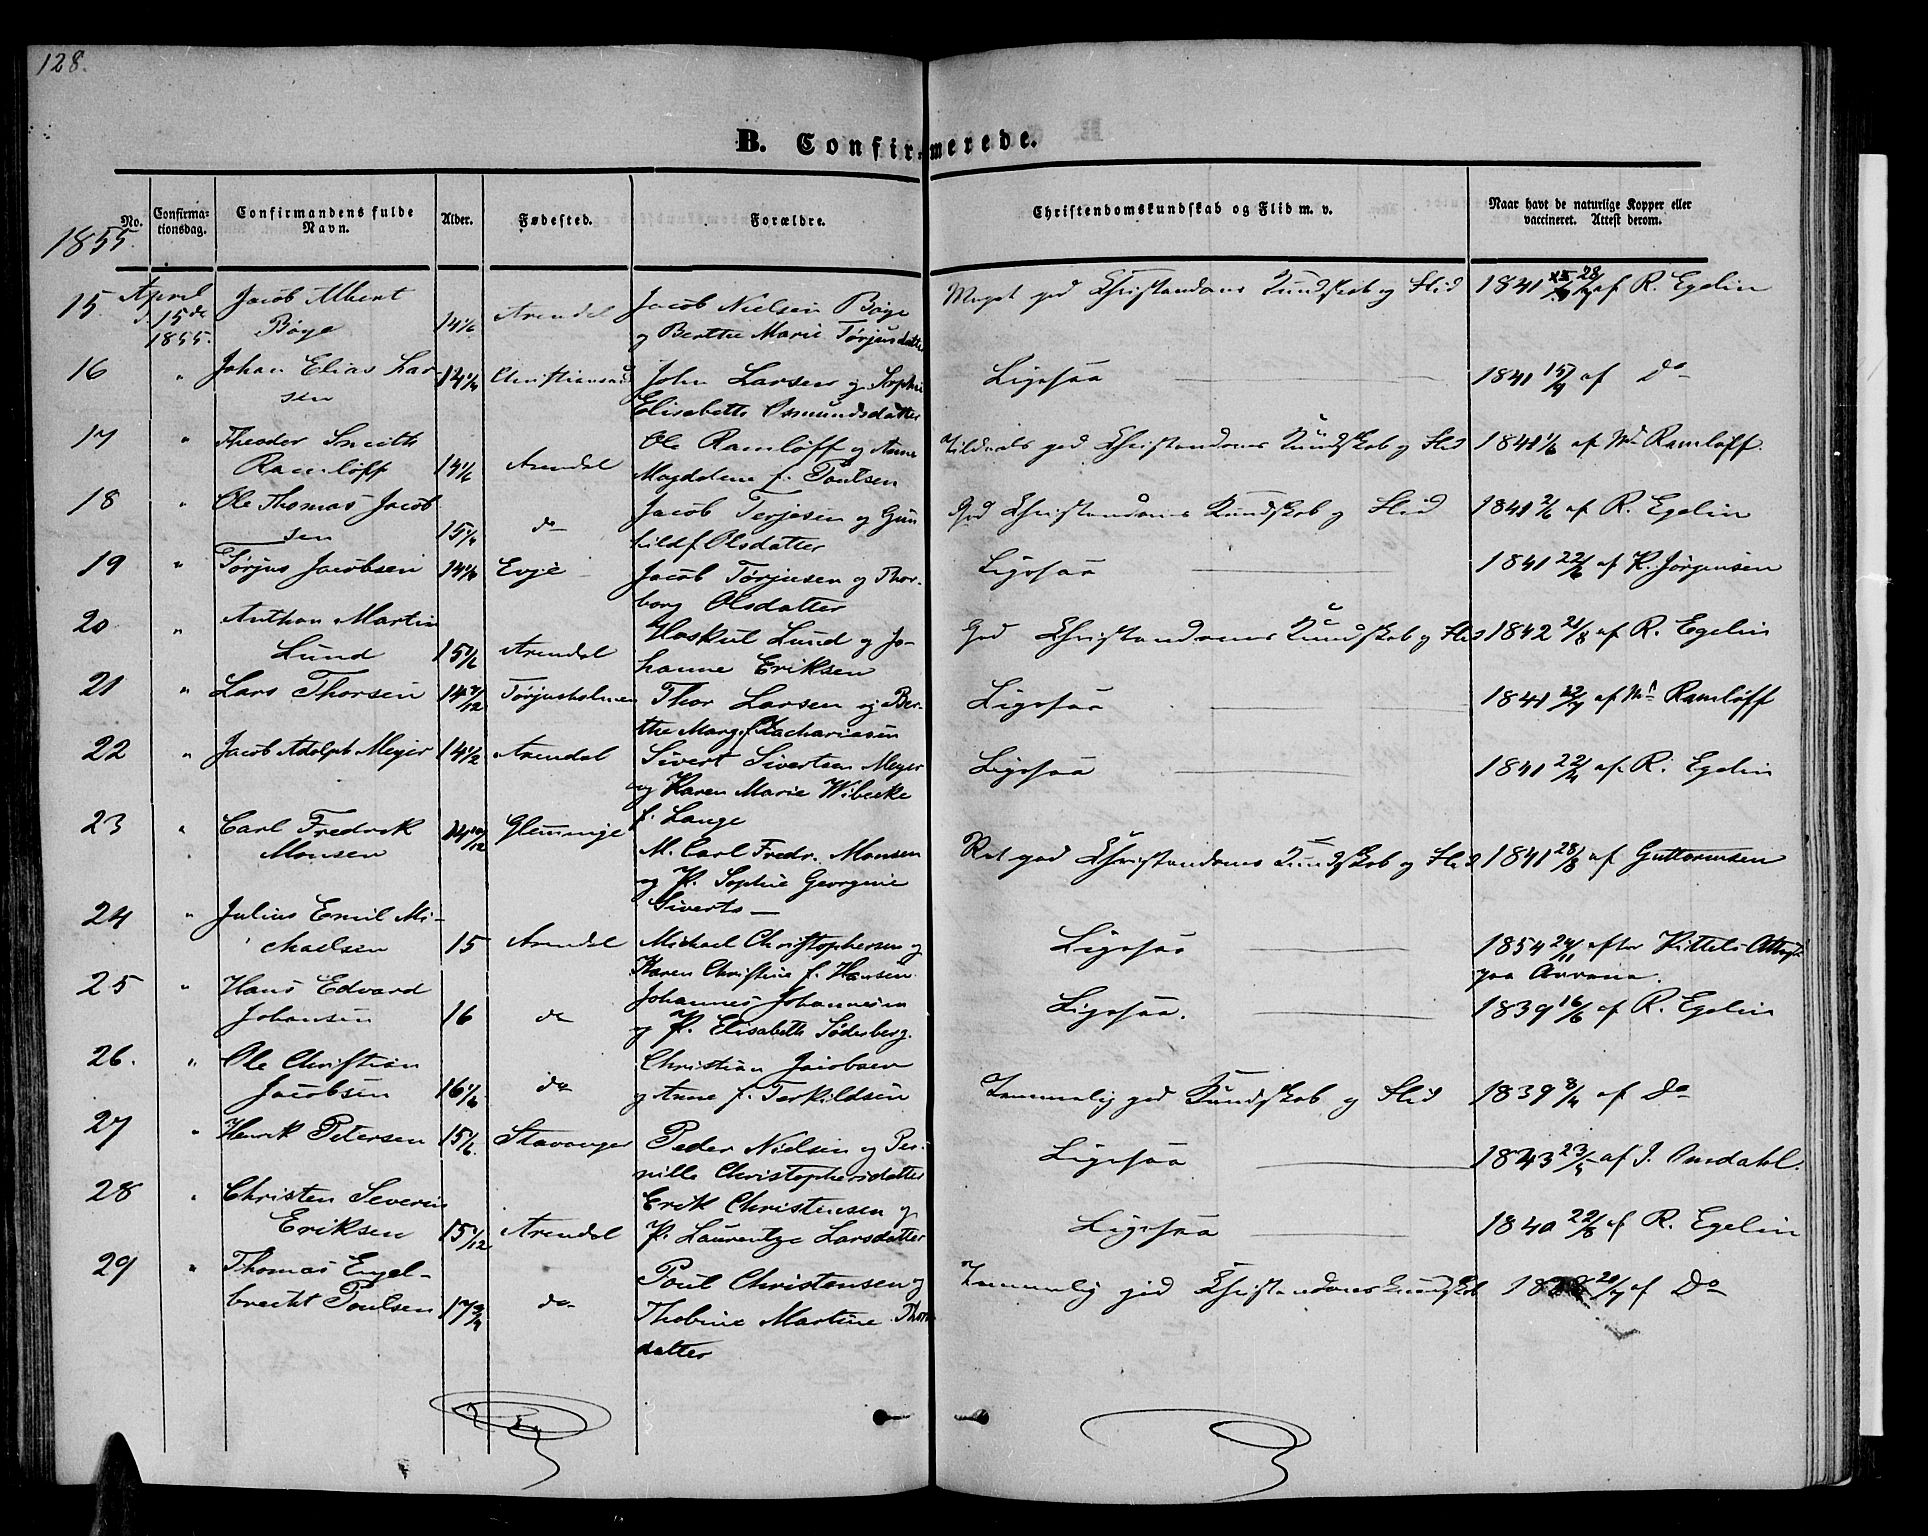 128.
B. Confirmerede.
No.
Confirma-
tionsdag.
Confirmandens fulde
Navn.
Alder.
Fødested.
Forældre.
Christendomskundskab og Flid m. v.
Naar havt de naturlige Kopper eller
vaccineret. Attest derom.
1855.
15. April 15de 1855. Jacob Albert Arendal Jacob Nielsen Bøge Meget god Christendoms Kundskab og Flid 1841 af R. Egelin
Bøge 14 1/2 og Berthe Marie Tørjusdatter
16 " Johan Elias Lar- 14 1/4 Christiansand John Larsen og Sophie Ligesaa 1841 15/9 af Do
sen Elisabeth Osmundsdatter
17 " Theodor Smith Ole Ramløff og Anne god Christendoms Kundskab og Flid 1841 1/6 af Md Ramløff.
Ramløff 14 1/2 Arendal Magdalene f. Poulsen
18 " Ole Thomas Jacob Jacob Terjesen og Gun God Christendoms Kundskab og Flid 1841 af R. Egelin
sen 15 1/4 do hild f. Olsdatter
19 " Tørjus Jacobsen Evje Jacob Tørjusen og Thor- Ligesaa 1841 22/6 af K. Jørgensen
borg Olsdatter
20 " Anthon Martin Haskul Lund og Jo- God Christendoms Kundskab og Flid 1842 21/8 af R. Egelin
Lund 15 1/2 Arendal hanne Eriksen
21 " Lars Thorsen Tørjusholmen Thor Larsen og Ber- Ligesaa 1841 22/7 af Md Ramløff
the Marg. f. Zachariasen
22 " Jacob Adolph Meyer 14 1/2 Arendal Sivert Sivertsen Meyer Ligesaa 1841 af R. Egelin
og Karen Marie Wibecke
f. Lange
23 " Carl Fredrik 14 10/12 Glemminge M. Carl Fredr. Monsen Ret god Christendoms Kundskab og Flid 1841 28/8 af Guttormsen
Monsen og H. Sophie Georgine
Siverts
24 " Julius Emil Mi-
chaelsen 15 Arendal Michael Christophersen og Ligesaa 1854 24/11 efter Kittels Attest
Karen Christine f. Hansen paa
25 " Hans Edvard Johannes Johannesen
Johansen 16 do og H. Elisabeth Søderberg. Ligesaa. 1839 16/6 af R. Egelin
26. " Ole Christian Christian Jacobsen
Jacobsen 16 1/6 do og Anne f. Terkildsen Temmelig god Kundskab og Flid 1839 af Do
27 " Henrik Petersen 15 1/6. Stavanger Peder Nielsen og Per- Ligesaa 1843 23/5 af J. Omdahl.
nille Christophersdatter
28 " Christen Severin Erik Christensen og
Eriksen Arendal H. Laurentze Larsdatter Ligesaa 1840 22/8 af R. Egelin
29 " Thomas Engel- Poul Christensen og Temmelig god Christendomskundskab af Do
brecht Poulsen 17 3/4 do Thobine Martine Thom
datter